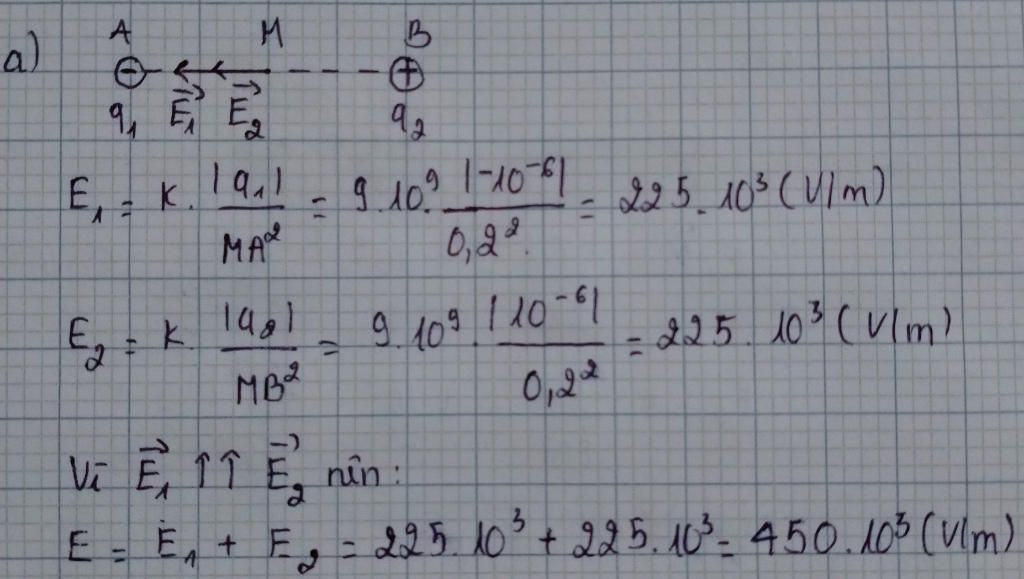 a) A M B
⊖ ⊕
q₁ E⃗₁ E⃗₂ q₂
E₁ = k. |q₁| / MA² = 9.10⁹. |-10⁻⁶| / 0,2² = 225.10³ (V/m)
E₂ = k. |q₂| / MB² = 9.10⁹. |10⁻⁶| / 0,2² = 225.10³ (V/m)
Vì E⃗₁ ↑↑ E⃗₂ nên:
E = E₁ + E₂ = 225.10³ + 225.10³ = 450.10³ (V/m)